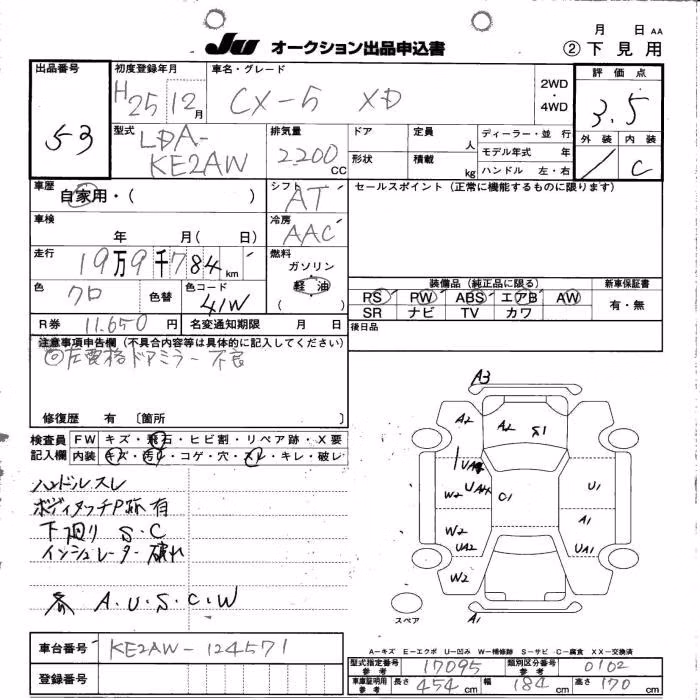 Ju オークション出品申込書
月 日 AA
② 下見用
出品番号
53
初度登録年月
H25 12月
車名・グレード
CX-5 XD
2WD
・
4WD
評価点
3.5
外装 内装
／ C
型式
LDA-
KE2AW
排気量
2200
CC
ドア
定員
人
形状
積載
kg
ディーラー・並行
モデル年式 年
ハンドル 左・右
車歴
自家用・( )
シフト
AT
セールスポイント(正常に機能するものに限ります)
車検
年 月( 日)
冷房
AAC
走行
19万9千784km
燃料
ガソリン
軽油
( )
色
クロ
色替
色コード
41W
装備品(純正品に限る)
PS PW ABS エアB AW
SR ナビ TV カワ
新車保証書
有・無
R券 11.650円
名変通知期限 月 日
後日品
注意事項申告欄(不具合内容等は具体的に記入してください)
◎左電格ドアミラー不良
修復歴 有〔箇所 〕
検査員
記入欄
FW キズ・飛石・ヒビ割・リペア跡・X要
内装 キズ・汚れ・コゲ・穴・スレ・キレ・破レ
ハンドルスレ
ボディタッチP跡有
下廻り S・C
インシュレーター破れ
A.U.S.C.W
A3
A2
A2
S1
UA4
UA4
W2
C1
U1
W2
A1
UA2
UA1
W2
A1
スペア
A－キズ E－エクボ U－凹み W－補修跡 S－サビ C－腐食 XX－交換済
車台番号
KE2AW-124571
登録番号
型式指定番号
参考
17095
類別区分番号
参考
0102
車庫証明用
参考
長さ 454cm
幅 184cm
高さ 170cm